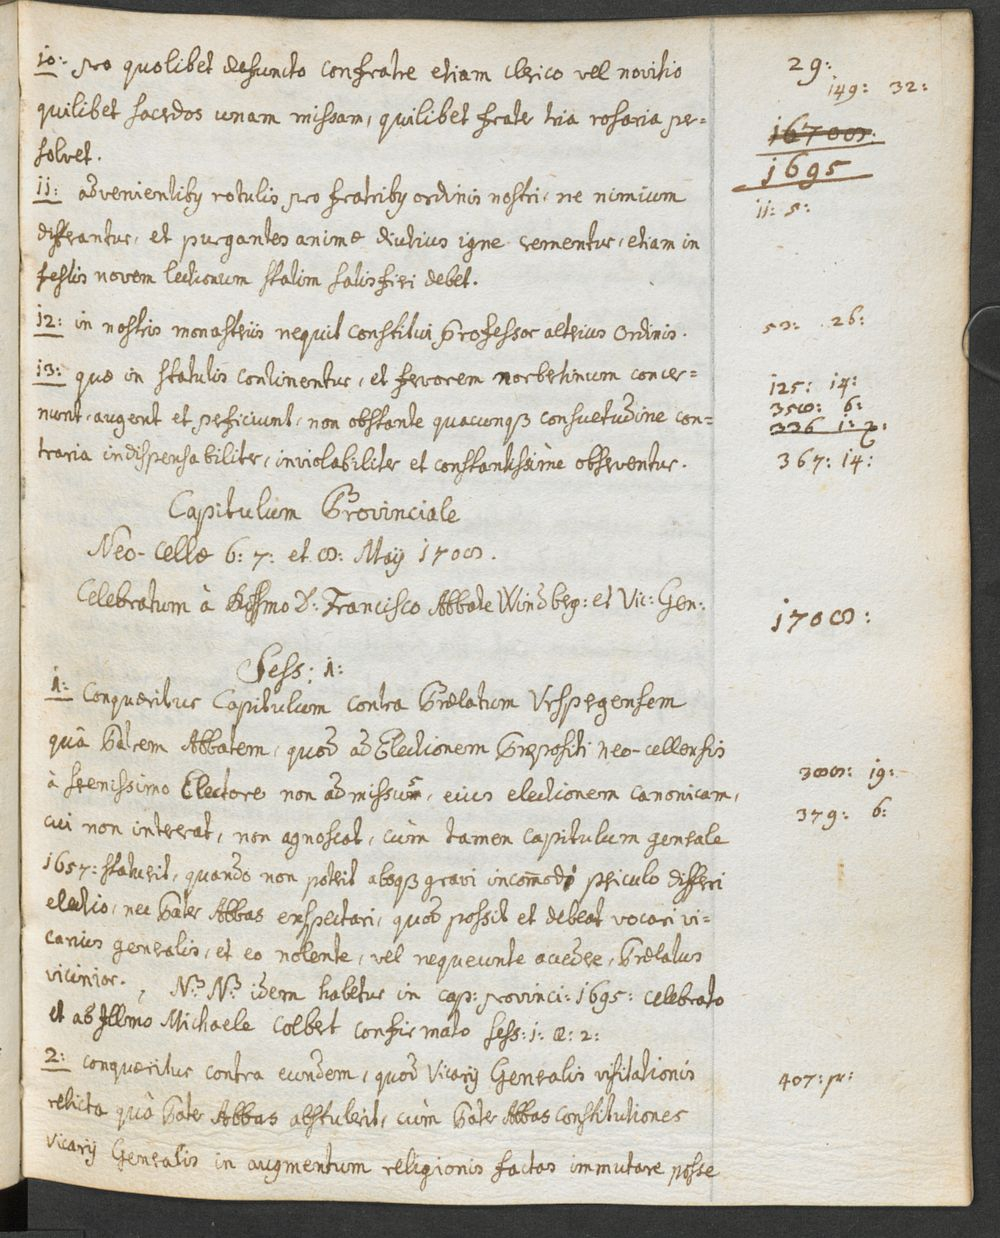 10: pro quolibet defuncto confratre etiam clerico vel novitio
quilibet sacerdos unam missam, quilibet frater tria rosaria per=
solvet.
11: advenientibq rotulis pro fratribq ordinis nostri, ne nimium
differantur, et purgantes animæ diutius igne crementur, etiam in
festis novem lectionum statim satisfieri debet.
12: in nostris monasterijs nequit constitui Professor alterius Ordinis.
13: quæ in statutis continentur, et fervorem norbertinum concer=
nunt, augent et perficiunt, non obstante quacunqꝫ consuetudine con=
traria indispensabiliter, inviolabiliter et constantissimè observentur.
Capitulum Provinciale
Neo-Cellæ 6: 7: et 8: Maij 1708.
Celebratum à Rssmo D: Francisco Abbate Windberg: et Vic: Gen:
Sess: 1:
1: Conquæritur Capitulum contra Prælatum Urspergensem
quâ Patrem Abbatem, quod ad Electionem Præpositi neo-cellensis
à serenissimo Electore non admissus, eius electionem canonicam,
cui non intererat, non agnoscat, cùm tamen capitulum generale
1657: statuerit, quando non poterit absqꝫ gravi incom̄odi periculo differi
electio, nec Pater Abbas exspectari, quod possit et debeat vocari vi=
carius generalis, et eo nolente, vel nequeunte accedere, Prælatus
vicinior. , Nᵇ Nᵇ idem habetur in cap: provinci: 1695: celebrato
et ab Illmo Michaele Colbert confirmato sess: 1: æ: 2:
2: conquæritur contra eundem, quod Vicarij Generalis visitationis
relicta quâ Pater Abbas abstulerit, cùm Pater Abbas constitutiones
Vicarij Generalis in augmentum religionis factas immutare posse
29:
149: 32:
16708.
1695
11: 5:
53: 26:
125: 14:
358: 6:
336 1: 2:
367: 14:
1708:
388: 19:
379: 6:
407: pr: